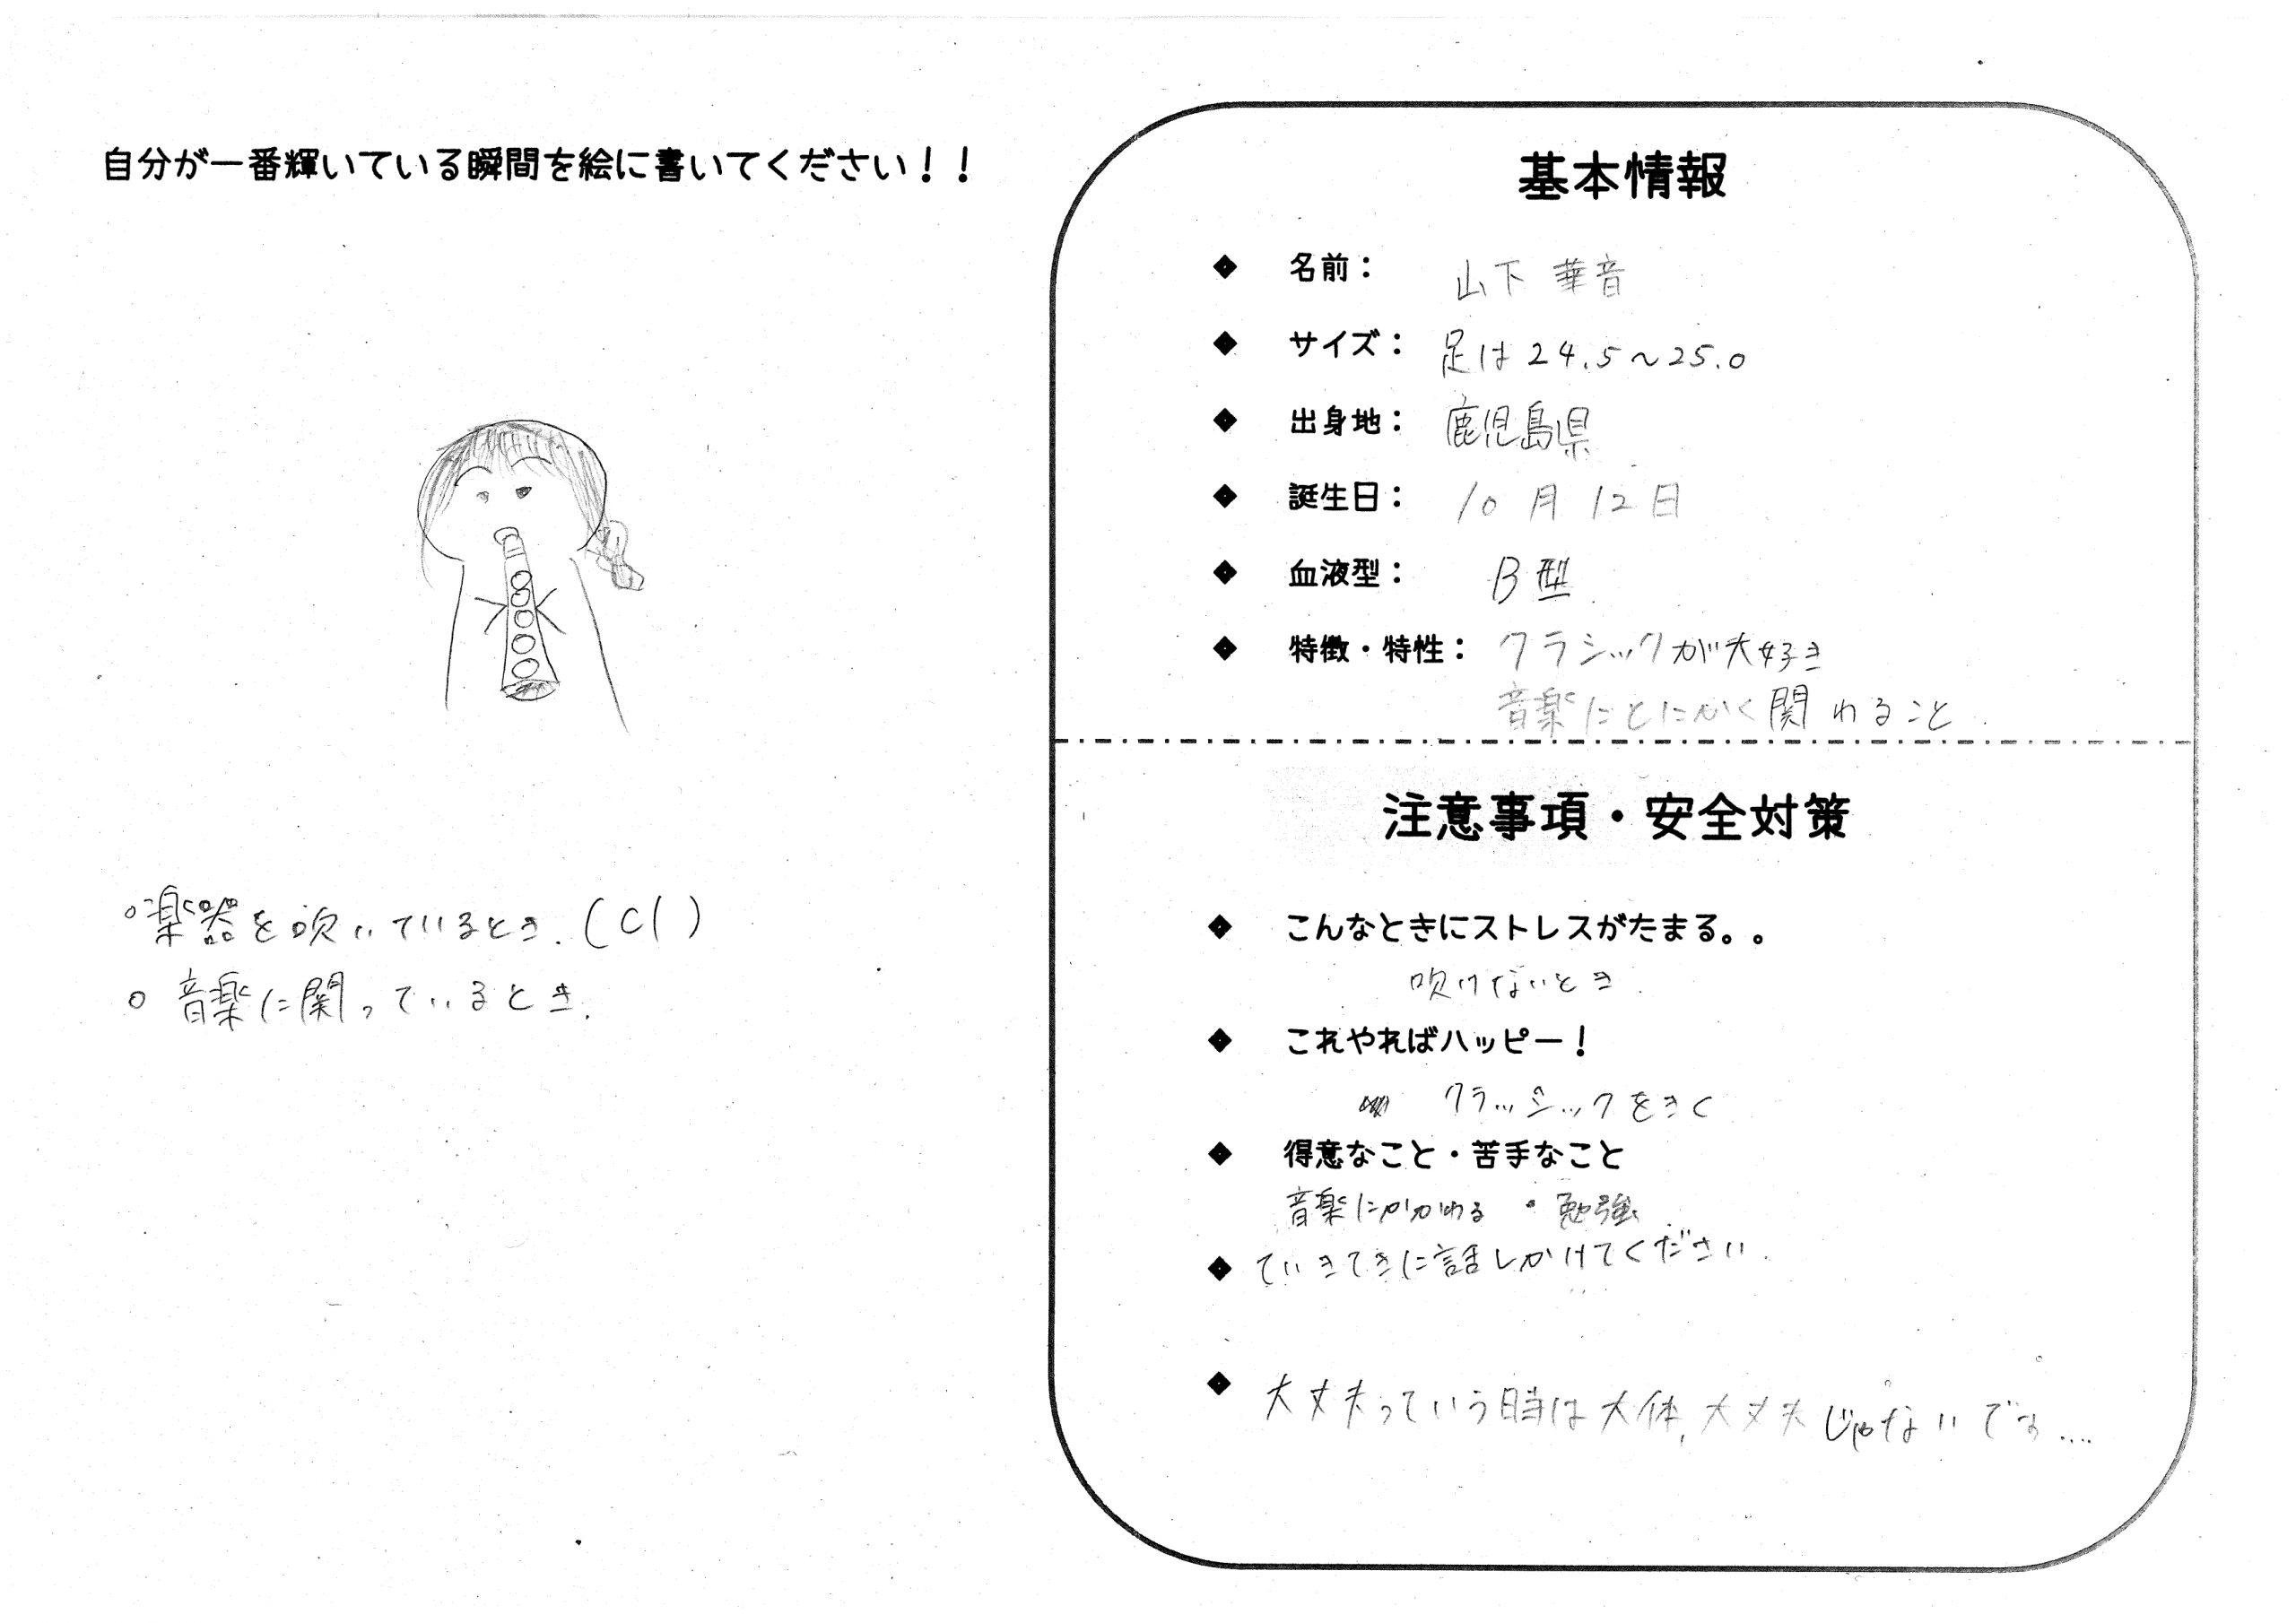 自分が一番輝いている瞬間を絵に書いてください！！
○楽器を吹いているとき.(Cl)
○ 音楽に関っているとき.
基本情報
◆ 名前： 山下 華音
◆ サイズ： 足は24.5～25.0
◆ 出身地： 鹿児島県
◆ 誕生日： 10月12日
◆ 血液型： B型
◆ 特徴・特性： クラシックが大好き
音楽にとにかく関わること.
注意事項・安全対策
◆ こんなときにストレスがたまる。。
吹けないとき.
◆ これやればハッピー！
クラッシックをきく
◆ 得意なこと・苦手なこと
音楽にかかわる ・勉強
◆ ていきてきに話しかけてください.
◆ 大丈夫っていう時は大体,大丈夫じゃないです....